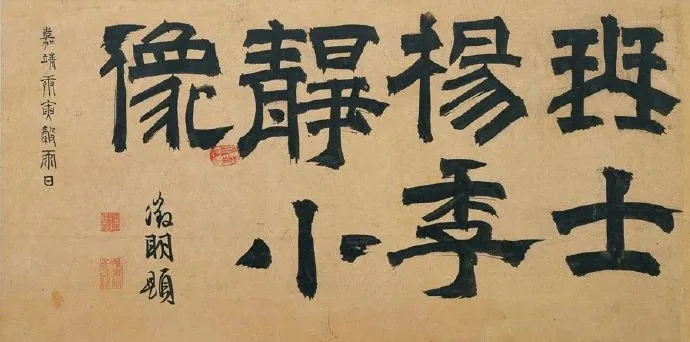 琴士
楊季
靜小
像
徵明題
嘉靖庚寅穀雨日